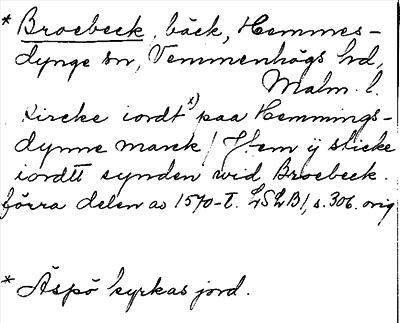 * Broebeck, bäck, Hemmes-
dynge sn, Vemmenhögs hd,
Malm. l.
Kircke iordt *) paa Hemmings-
dynne marck / Jtem ÿ sticke
iordtt synden wid Broebeck.
förra delen av 1570-t. LSLB1, s. 306. orig
* Äspö kyrkas jord.